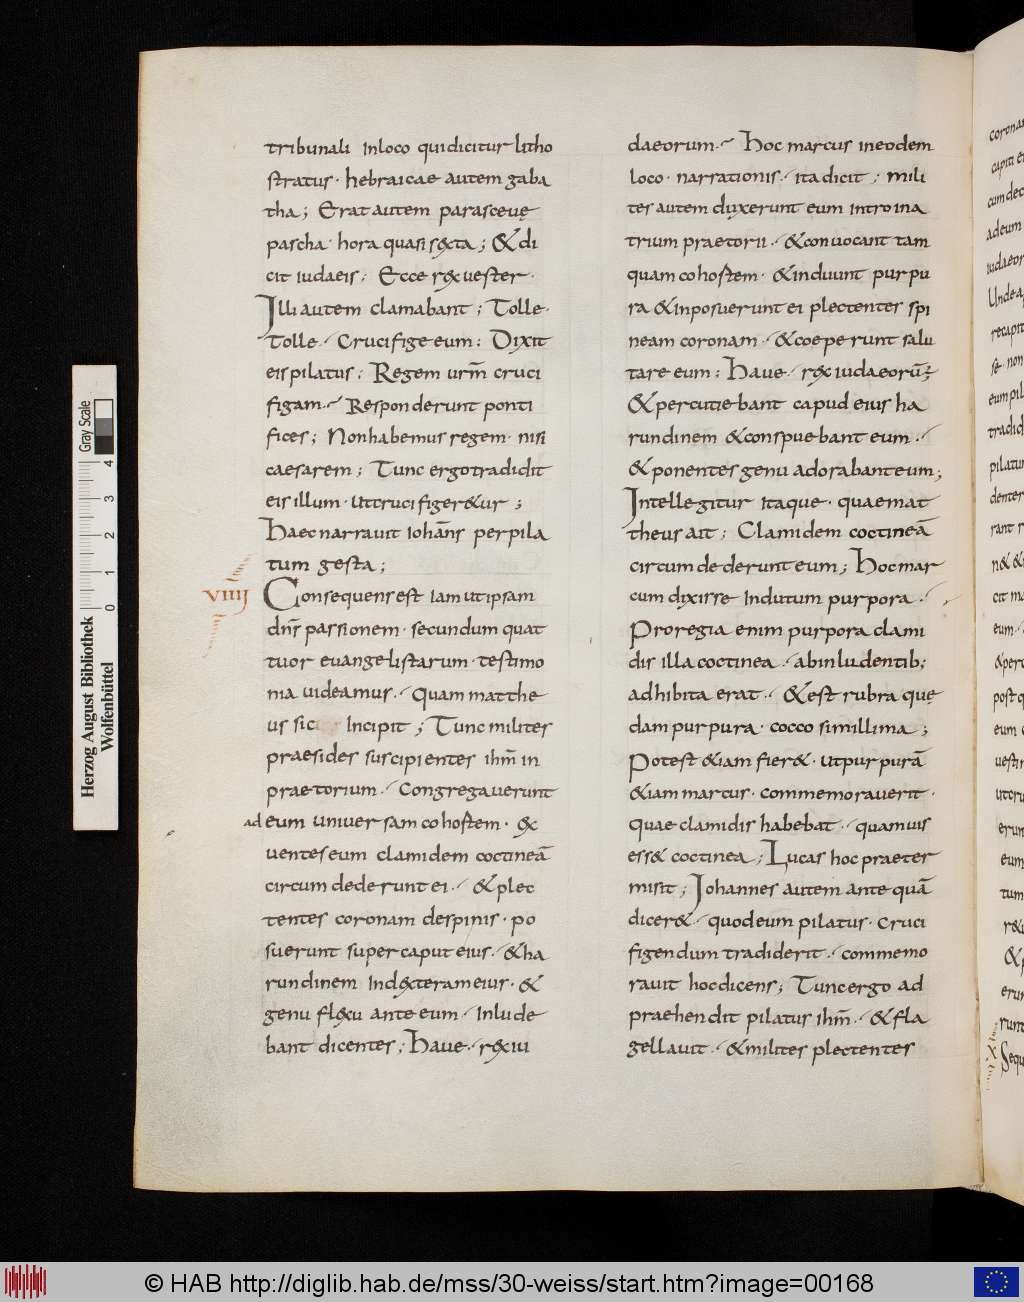 tribunali inloco quidicitur litho
stratus · hebraicae autem gaba
tha ; Erat autem parasceuę
pascha · hora quasi sexta ; & di
cit iudaeis ; Ecce rex uester ·
Illi autem clamabant ; Tolle ·
Tolle · Crucifige eum ; Dixit
eis pilatus ; Regem urm̄ cruci
figam · Responderunt ponti
fices ; Nonhabemus regem · nisi
caesarem ; Tunc ergo tradidit
eis illum · ut crucifiger&ur ;
Haec narrauit iohān̄s per pila
tum gesta ;
VIIII
Consequens est iam ut ipsam
dn̄i passionem · secundum quat
tuor euangelistarum · testimo
nia uideamus · Quam matthe
us sic incipit ; Tunc milites
praesides suscipientes ihm̄ in
praetorium · Congregauerunt
ad eum uniuersam cohostem · ex
uentes eum clamidem coctineā
circumdederunt ei · & plec
tentes coronam despinis · po
suerunt super caput eius · & ha
rundinem Indexteram eius · &
genu flexu ante eum · Inlude
bant dicentes ; Haue · rex iu
daeorum · Hoc marcus ineodem
loco · narrationis · ita dicit ; mili
tes autem duxerunt eum introina
trium praetorii · & conuocant tam
quam cohostem · & induunt purpu
ra & inposuerunt ei plectentes spi
neam coronam · & coeperunt salu
tare eum ; Haue · rex iudaeorū ;
& percutiebant capud eius ha
rundinem & conspuebant eum ·
& ponentes genu adorabant eum ;
Intellegitur itaque · quae mat
theus ait ; Clamidem coctineā
circumdederunt eum ; Hoc mar
cum dixisse Indutum purpora ·
Pro regia enim purpora clami
dis illa coctinea · abinludentib;
adhibita erat · & est rubra quę
dam purpura · cocco simillima ;
Potest &iam fier& · ut purpurā
&iam marcus · commemorauerit ·
quae clamidis habebat · quamuis
ess& coctinea ; Lucas hoc praeter
misit ; Johannes autem ante quā
dicer& · quod eum pilatus · cruci
figendum tradiderit · commemo
rauit hoc dicens ; Tunc ergo ad
praehendit pilatus ihm̄ · & fla
gellauit · & milites plectentes
Gray Scale
0 1 2 3 4
Herzog August Bibliothek
Wolfenbüttel
© HAB http://diglib.hab.de/mss/30-weiss/start.htm?image=00168